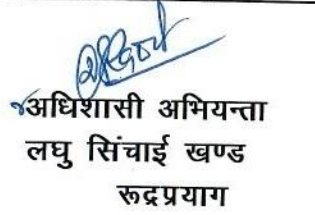 अधिशासी अभियन्ता
लघु सिंचाई खण्ड
रूद्रप्रयाग